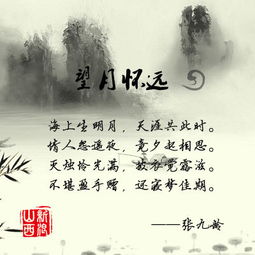 望月怀远
海上生明月，天涯共此时。
情人怨遥夜，竟夕起相思。
灭烛怜光满，披衣觉露滋。
不堪盈手赠，还寝梦佳期。
——张九龄
新浪
山西